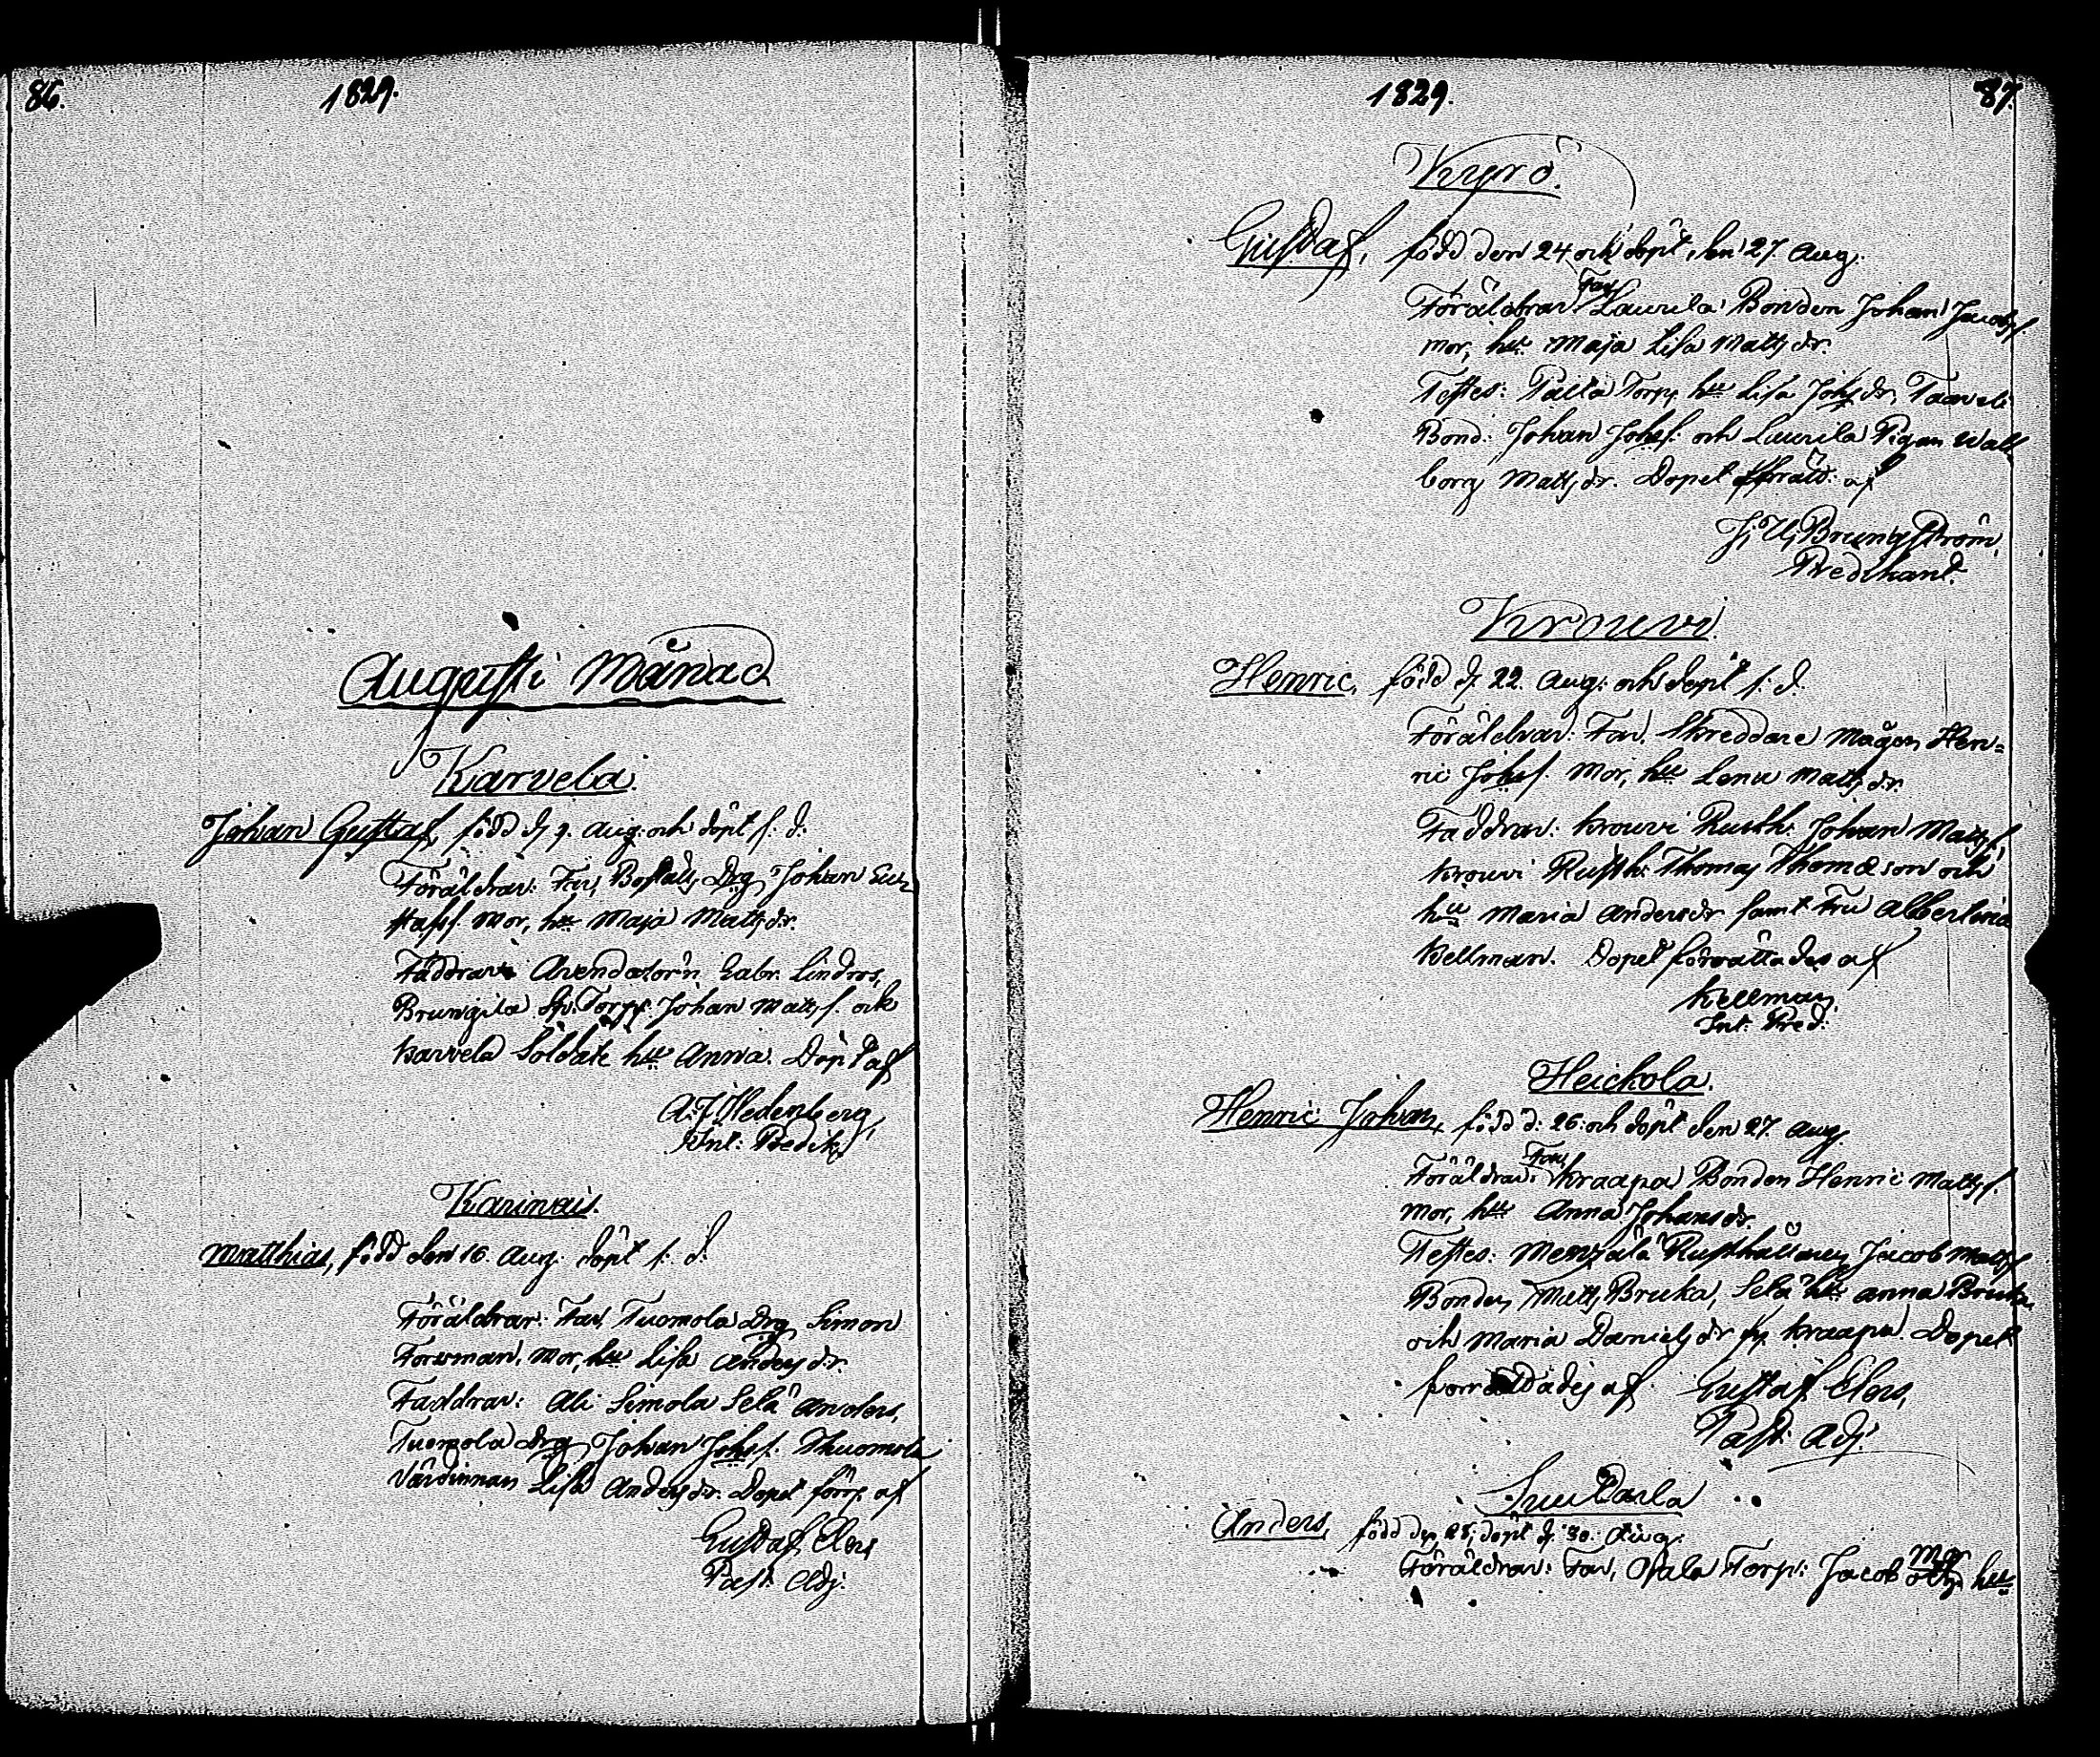 86.
1829.
Augusti Månad
Karvela.
Johan Gustaf, född d. 9. Aug. och döpt s. d.
Föräldrar: Far, Boställs Drg Johan Gu-
stafss. Mor, hu Maja Mattsdr.
Faddrar Arendatorn Gabr. Lindros,
Johan Matss. och
Karvela Soldate hu Anna. Döpt af
A. F. Hedenberg,
Int: Predik.
Karinais.
Matthias, född den 16. Aug. döpt s. d.
Föräldrar: Far, Tuomola Drg Simon
Forsman, Mor, hu Lisa Andersdr.
Faddrar: Ali Simola Anders,
Tuomola Drg Johan Johss. Thuomola
Värdinnan Lisa Andersdr. Dopet förr. af
Gustaf Elers
Past. Adj.
1829.
87.
Kyrö.
Gustaf, född den 24 och döpt den 27. Aug.
Föräldrar Far Laurila Bonden Johan Jacobss
mor, hu Maja Lisa Mattsdr.
Testes: Torp. hu Lisa Johsdr,
Bond: Johan Johss. och Laurila Pigan Wal-
borg Mattsdr. Dopet af
Brungström,
Predikant.
Krouvi.
Henric, född d. 22. Aug. och döpt s. d.
Föräldrar: Far, Skreddare Mågen Hen=
ric Johss. Mor, hu Lena Mattsdr.
Faddrar: Krouvi Rusth: Johan Matss,
Krouvi Rusth: Thomas Thomasson och
hu Maria Andersdr samt Fru Albertina
Kellman. Dopet förrättades af
Kellman,
Int: Pred:
Heickola.
Henric Johan, född d: 26: och döpt den 27. Aug
Föräldrar: Far, Kraapa Bonden Henric Matss.
Mor, hu Anna Johansdr.
Testes: Rusthållaren Jacob Matss
Bonden Matts Bruka, hu Anna Bruka
och Maria Danielsdr Kraapa. Dopet
förrättades af Gustaf Elers,
Past. Adj.
Anders, född den 25, döpt d. 30. Aug.
Föräldrar: Far, Torp: Jacob Mor hu